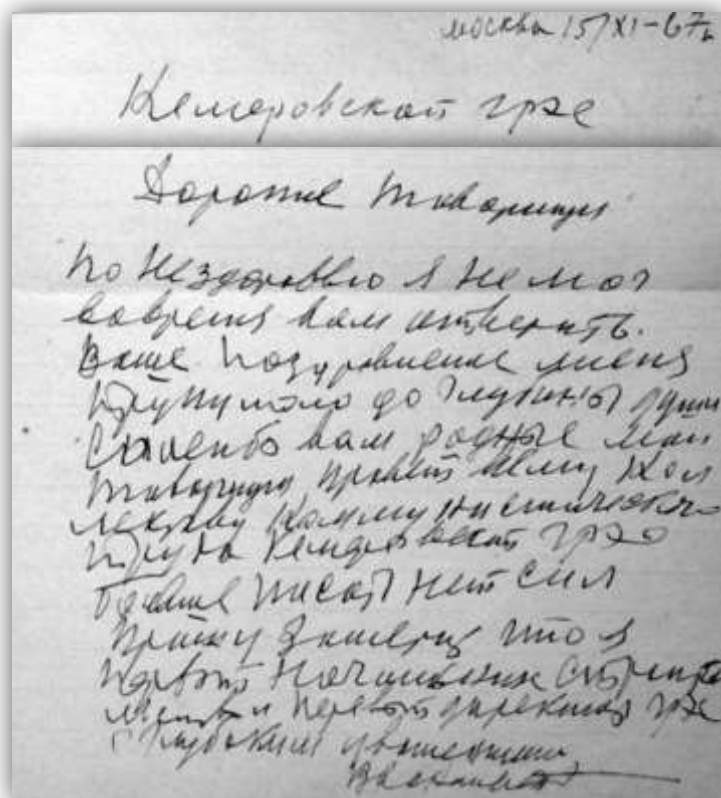 Москва 15/XI-67г
Кемеровской грэс
Дорогие товарищи
По нездоровью я не мог
вовремя вам ответить.
Ваше поздравление меня
тронуло до глубины души
Спасибо вам родные мои
товарищи привет всему кол
лективу коммунистическо
труда Кемеровской грэс
больше писат нет сил
что я
первый начальник строите
и первый директор грэс
с глубоким уважением